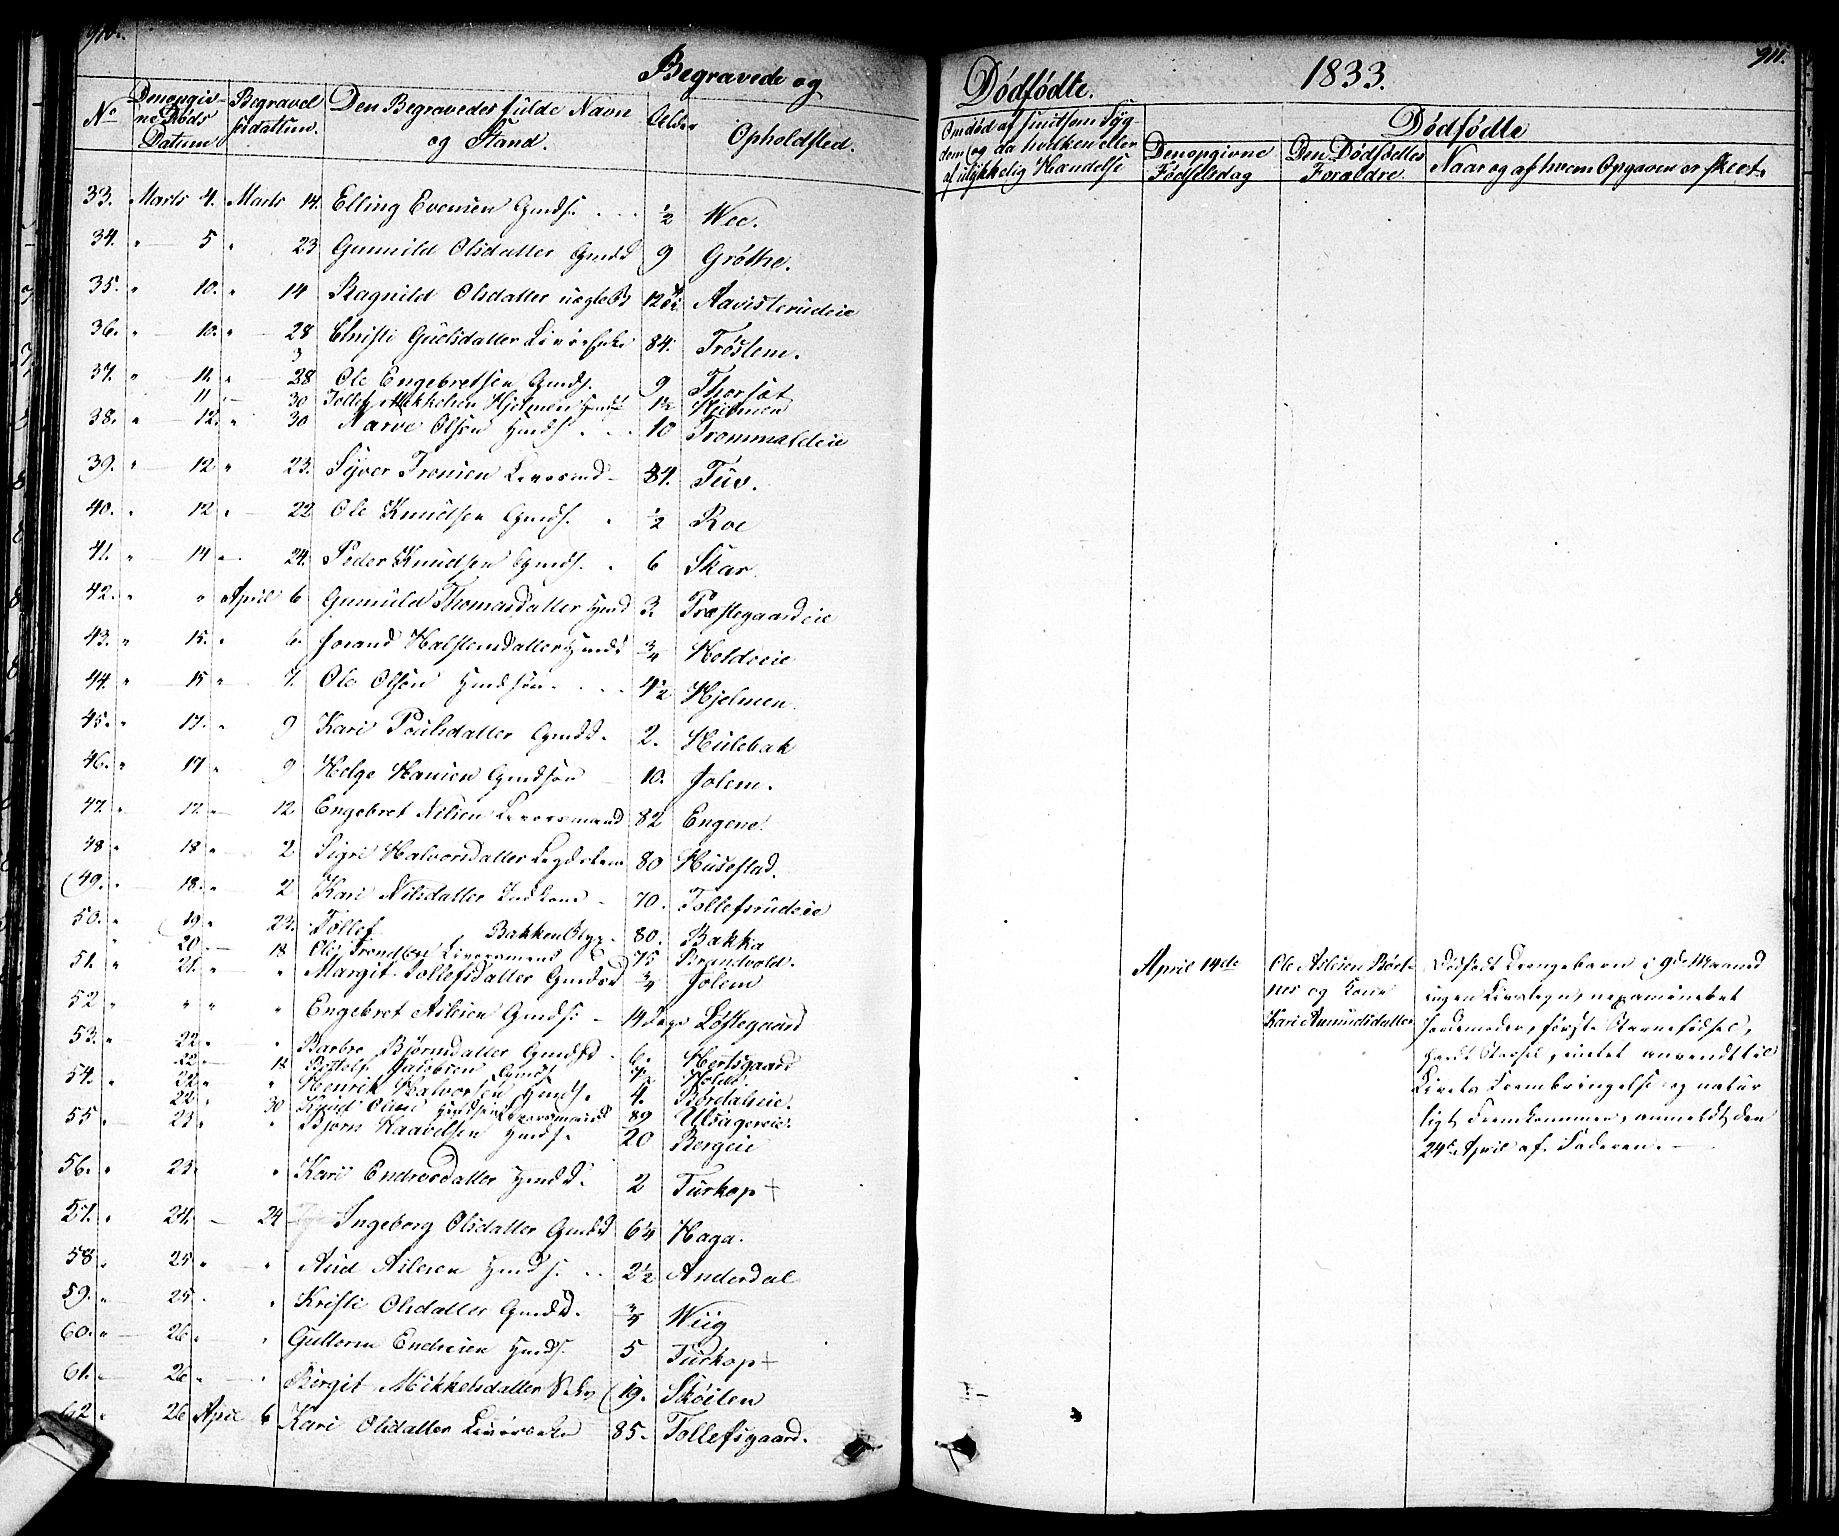 910.
Begravede og
No
Den opgiv-
ne Døds
Datum
Begravel
sesdatum.
Den Begravedes fulde Navn
og Stand.
Alder
Opholdsted.
33. Marts 4. Marts 14. Elling Evensen Gmds. ½ Wee.
34. " 5 " 23 Gunnild Olsdatter Gmdd 9 Grøthe.
35. " 10. " 14 Ragnild Olsdatter 12 Aavisterudeie
36. " 10. " 28 Christi Gudsdatter 84. Trøstem.
37. " 12 " 28 Ole Engebretsen Gmds. 9 Thorset
11 30 Tollef Mikkelsen Hjelmen 1½ Hjelmen
38. " 12. " 30 Narve Olsen Hmds. 10 Trommaldeie
39. " 12 " 23. Syver Tronsen 84. Tuv.
40. " 12 " 22 Ole Knudsen Gmds. ½ Roe
41. " 14 " 24. Peder Knudsen Gmds. 6 Skar.
42. " " April 6 Gunnild Thomasdatter Hmd 3. Præstegaardeie
43. " 15. " 6. Jorand Halstensdatter Hmdd ¾ Holdeie
44. " 15 " 7. Ole Olsen Hmdsøn. 4½ Hjelmen.
45. " 17. " 9 Kari Poulsdatter Gmdd. 2. Hulebak
46. " 17 " 9 Helge Hansen Gmdsøn 10. Jolem.
47. " 17. " 12 Engebret Nilsen 82 Engene.
48 " 18 " 2 Sigri Halvorsdatter 80 Husestad.
49. " 18. " 2 Kari Nilsdatter 70. Tollefsrudeie
50. " 19 " 23. Tollef Bakken 80. Bakka
20. 18 Ole Trondsen 75 Brandvold.
51. " 21. " " Margit Tollefsdatter Gmdsd ¾ Jolem
52 " " " " Engebret Aslesen Gmds. 14 Dage Løstegaard
53. " 22 " " Barbro Bjørnsdatter Gmdsd 6. Hertsgaard
22 18 Jacobsen Gmds Holde
54. " 22 " " Henrik Halvorsen Hmds. 4. Børdaleie.
22 " 30 Knud Olsen 89 Ulsageeie.
55 " 23 " " Bjørn Haavelsen Hmds. 20 Bergeie
56. " 23. " Kari Endresdatter Hmdd. 2 Turkop +
57. " 24. 24 Ingeborg Olsdatter Gmdd 6¼ Haga.
58 " 25 " " Aud Aslesen Hmds. 2½ Anderdal
59. " 25 " " Kristi Olsdatter Gmdd. ¾ Wiig
60. " 26 " " Guttorm Endresen Hmds. 5 Turkop +
61. " 26 " " Børgit Mikkelsdatter 19. Skøilen
62 " 26 April 6 Kari Olsdatter 85. Tollefsgaard.
911.
Dødfødte.
1833.
Om død af smitsom Syg-
dom og da hvilken eller
af ulykkelig Hændelse
Dødfødte
Den opgivne
Fødselsdag
Den Dødfødtes
Forældre
Naar og af hvem Opgaven er skeet.
April 14de
Ole Aslesen Børt-
nes og Kone
Kari Amundsdatter
Dødfødt Drengebarn i 9de Maaned
ingen Livstegn,
Jordemoder, første
haardt intet anvendt til
Livets Frembringelse og natur
ligt Fremkommen, anmeldt den
24de April af Faderen.